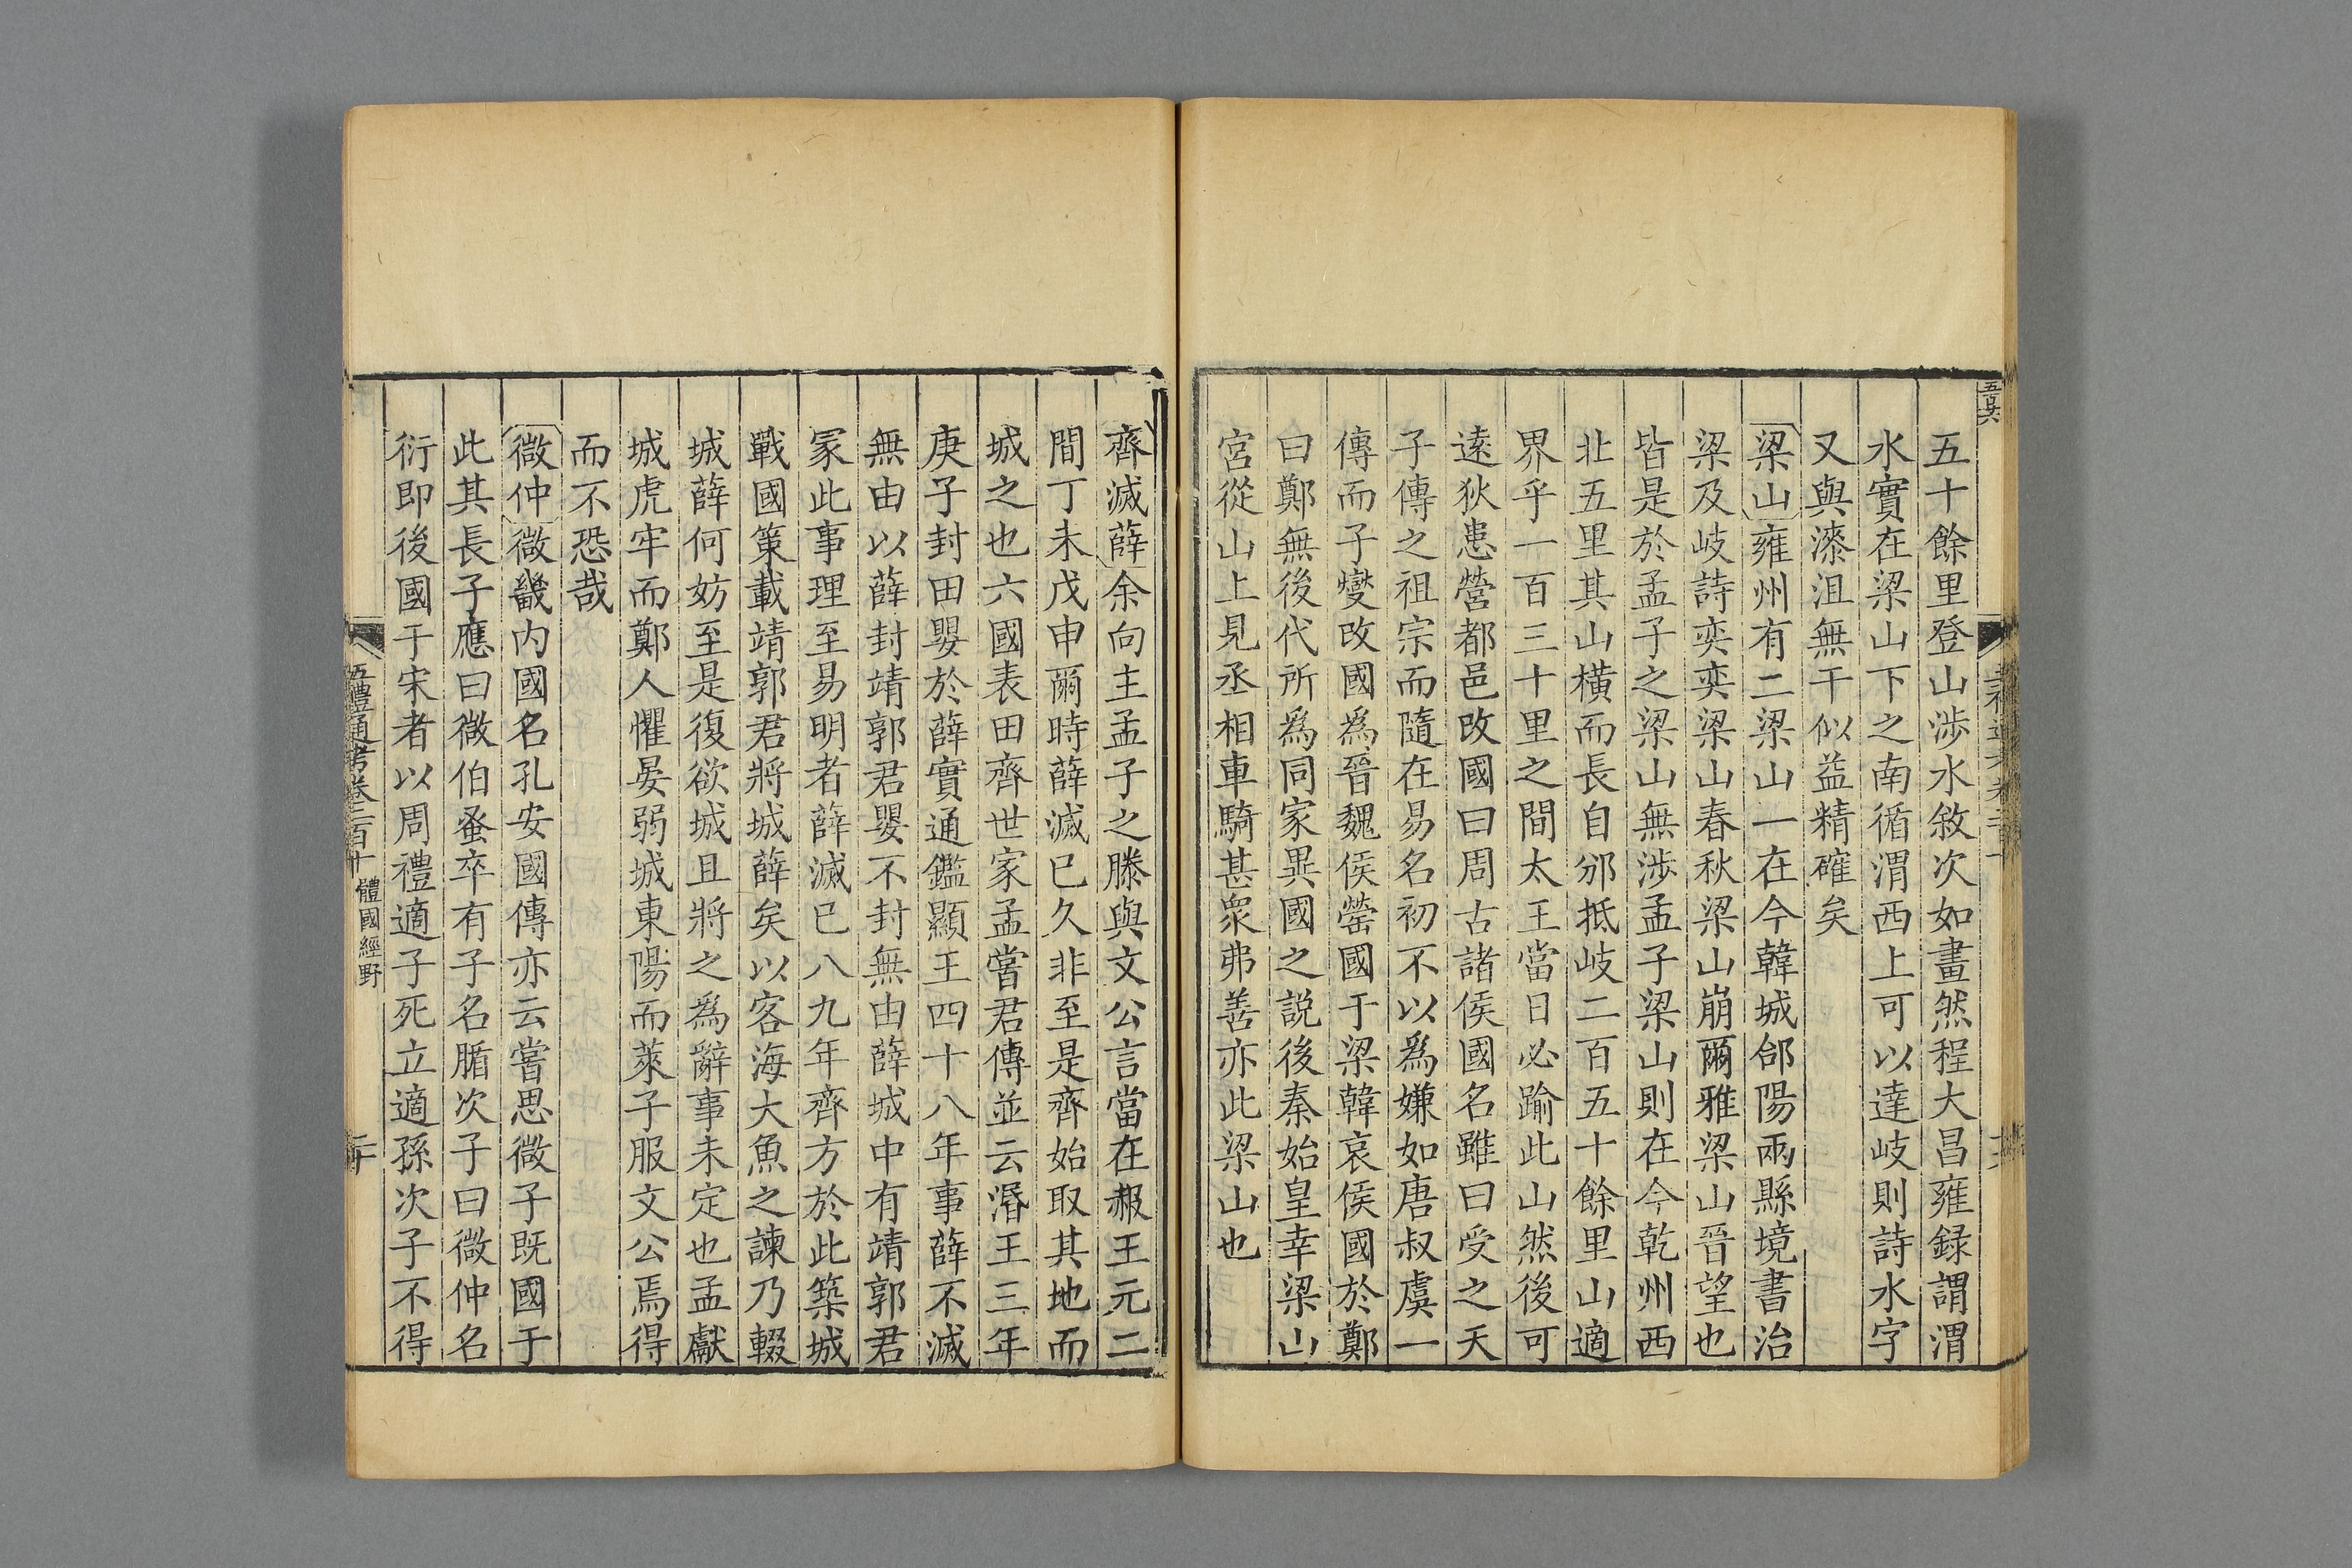 五十餘里登山涉水敘次如畫然程大昌雍録謂渭
水實在梁山下之南循渭西上可以達岐則詩水字
又與漆沮無干似益精確矣
梁山雍州有二梁山一在今韓城郃陽兩縣境書治
梁及岐詩奕奕梁山春秋梁山崩爾雅梁山晉望也
皆是於孟子之梁山無涉孟子梁山則在今乾州西
北五里其山橫而長自邠抵岐二百五十餘里山適
界乎一百三十里之間太王當日必踰此山然後可
遠狄患營都邑改國曰周古諸侯國名雖曰受之天
子傳之祖宗而隨在易名初不以爲嫌如唐叔虞一
傳而子燮改國爲晉魏侯罃國于梁韓哀侯國於鄭
曰鄭無後代所爲同家異國之説後秦始皇幸梁山
宮從山上見丞相車騎甚衆弗善亦此梁山也
齊滅薛余向主孟子之滕與文公言當在赧王元二
間丁未戊申爾時薛滅已久非至是齊始取其地而
城之也六國表田齊世家孟嘗君傳並云湣王三年
庚子封田嬰於薛實通鑑顯王四十八年事薛不滅
無由以薛封靖郭君嬰不封無由薛城中有靖郭君
冢此事理至易明者薛滅已八九年齊方於此築城
戰國策載靖郭君將城薛矣以客海大魚之諫乃輟
城薛何妨至是復欲城且將之爲辭事未定也孟獻
城虎牢而鄭人懼晏弱城東陽而萊子服文公焉得
而不恐哉
微仲微畿内國名孔安國傳亦云嘗思微子既國于
此其長子應曰微伯蚤卒有子名腯次子曰微仲名
衍即後國于宋者以周禮適子死立適孫次子不得
五禮通考卷二百十 體國經野 二十